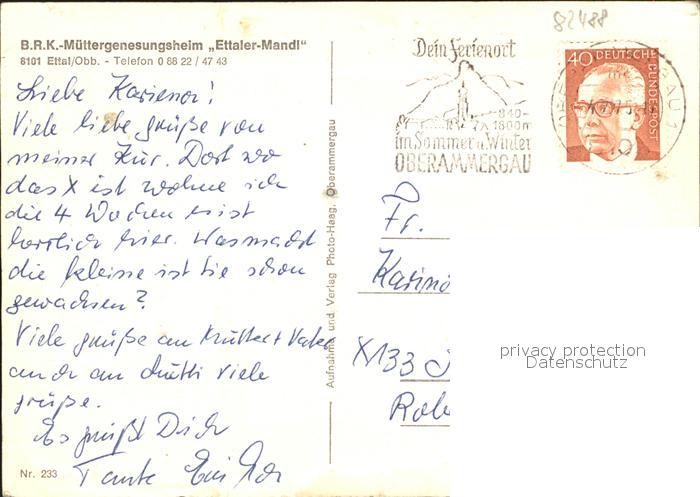 82488
B.R.K.-Müttergenesungsheim „Ettaler-Mandl"
8101 Ettal/Obb. - Telefon 0 88 22 / 47 43
Liebe
Viele liebe grüße von
meiner Kur. Dort wo
das X ist wohne ich
die 4 Wochen es ist
herrlich hier. Was macht
die kleine ist sie schon
gewachsen?
Viele grüße an Mutter + Vater
auch an Mutti viele
grüße.
Es grüßt Dich
Tante
Nr. 233
Aufnahme und Verlag Photo-Haag, Oberammergau
Dein Ferienort
840-
1800m
im Sommer u. Winter
OBERAMMERGAU
40 DEUTSCHE
BUNDESPOST
Fr.
X133
privacy protection
Datenschutz